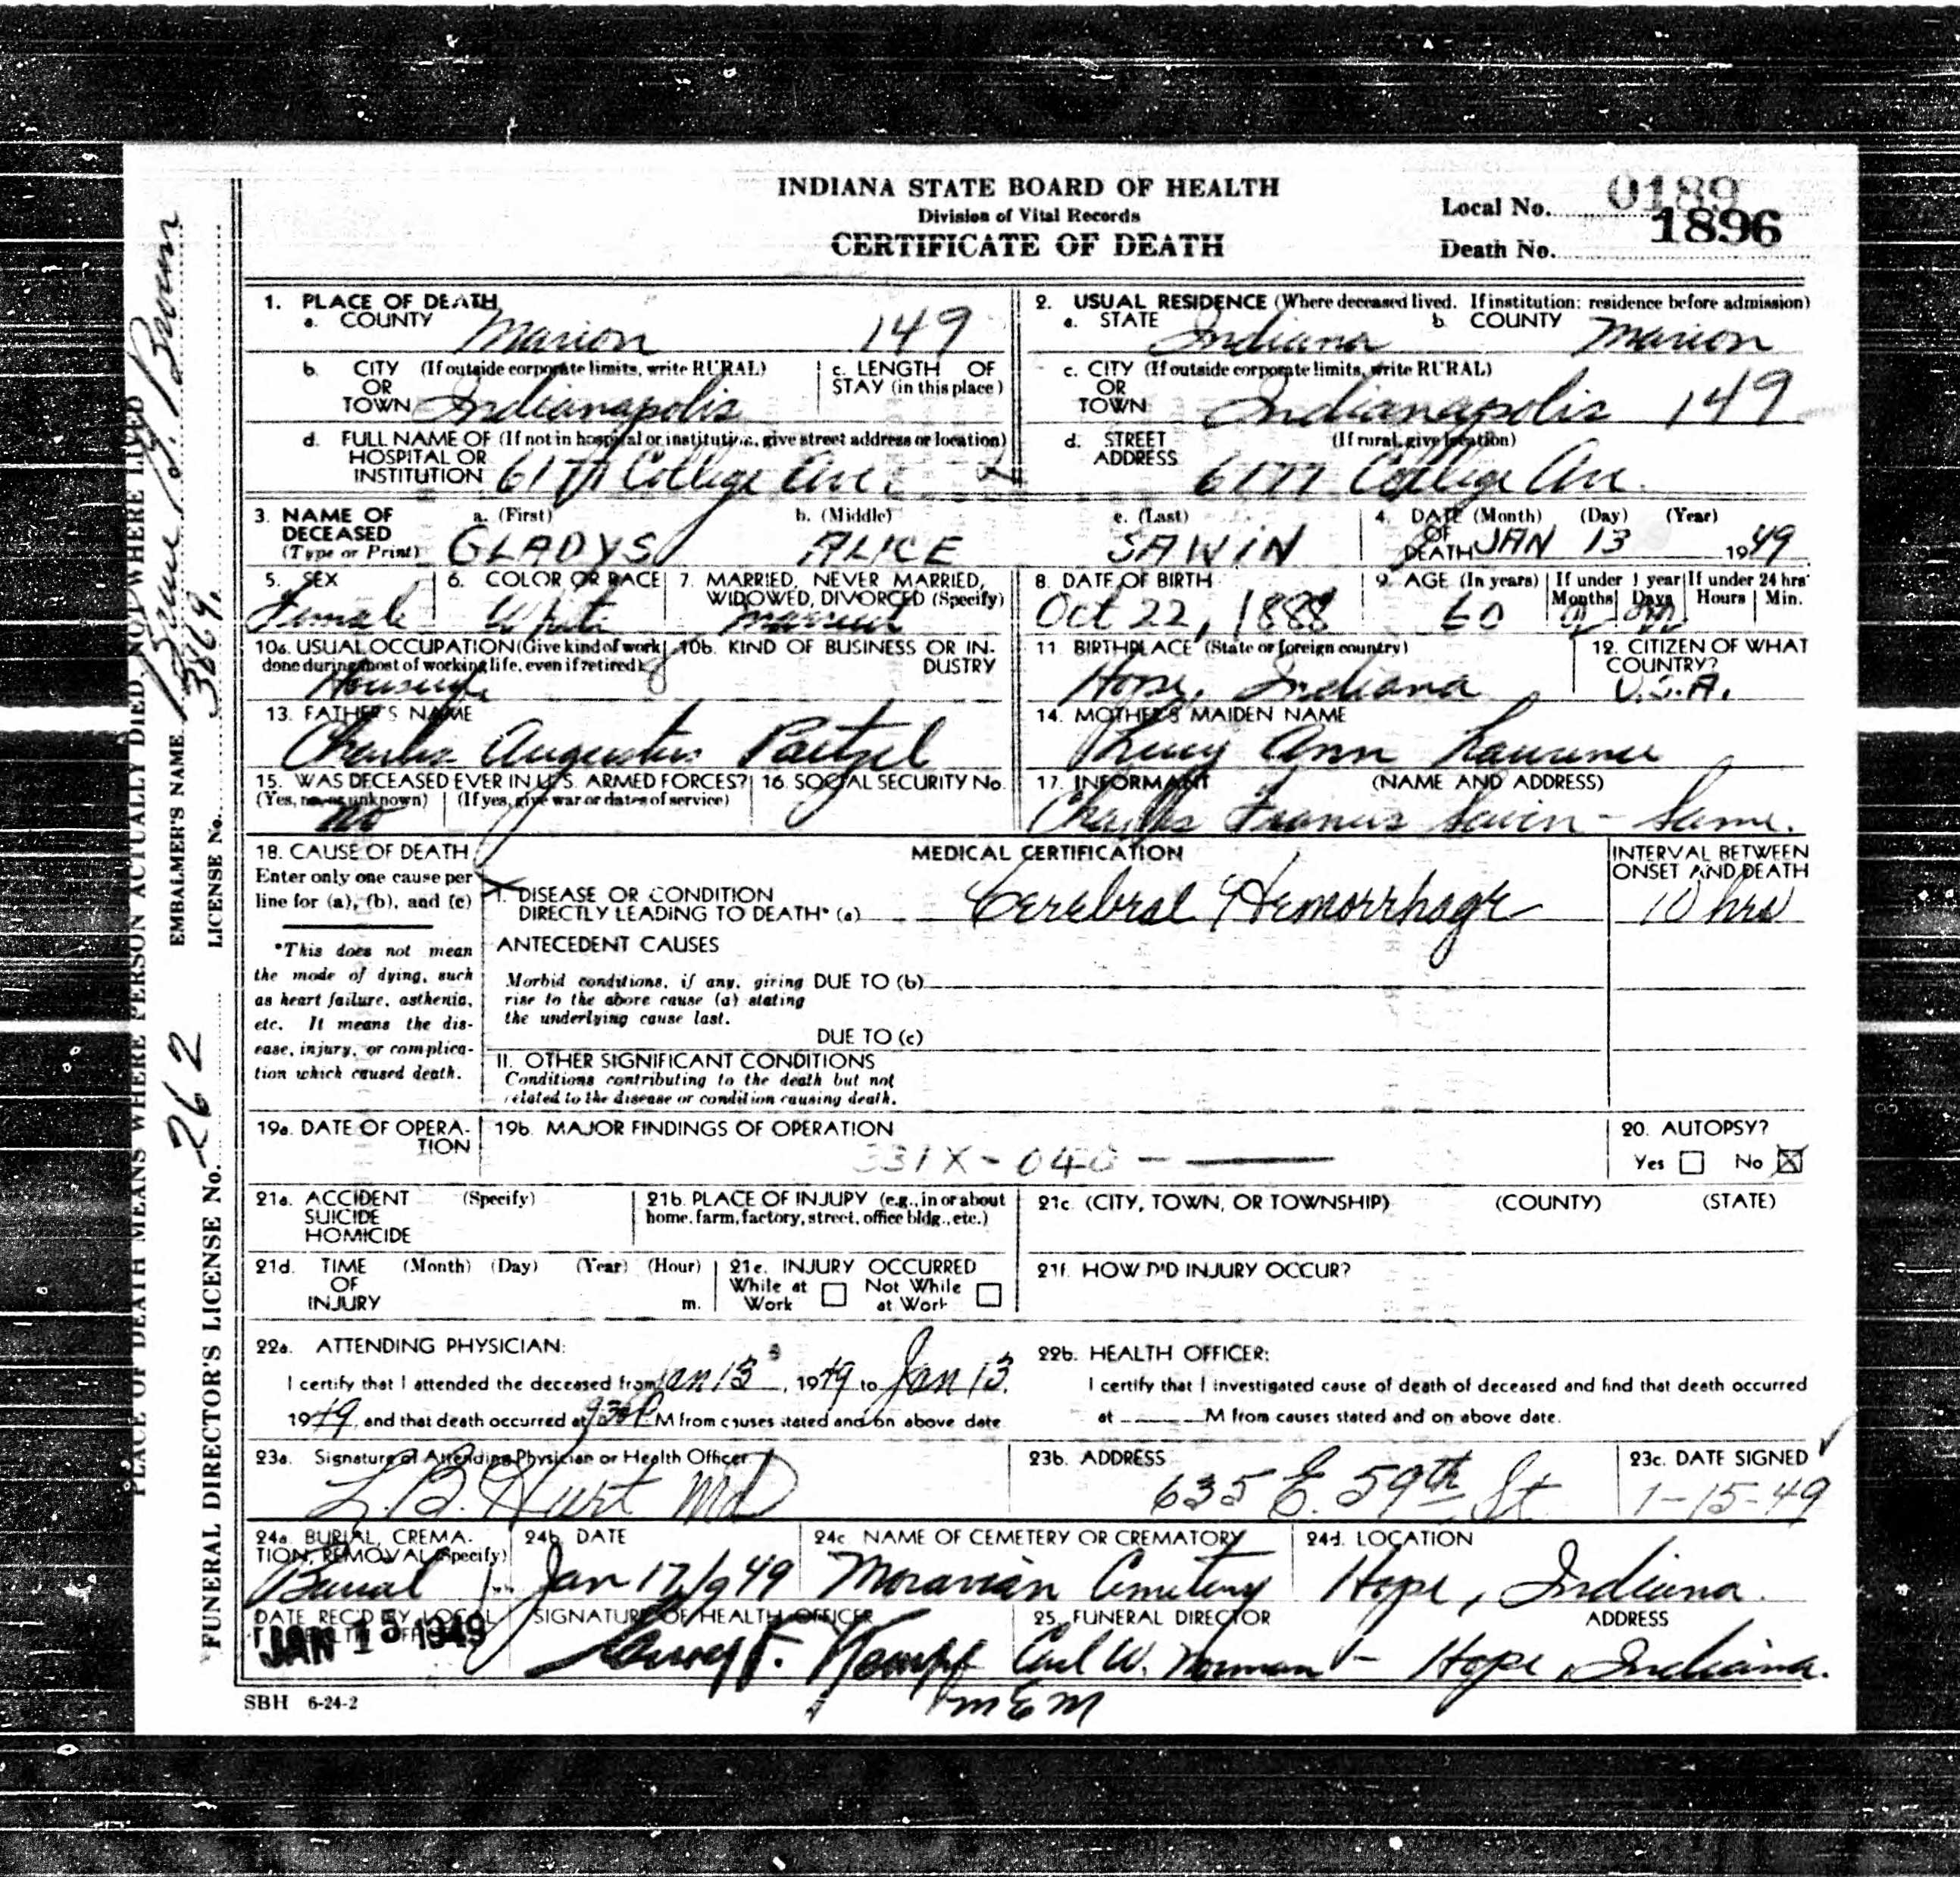 INDIANA STATE BOARD OF HEALTH
Division of Vital Records
CERTIFICATE OF DEATH
Local No. 0189
Death No. 1896
1. PLACE OF DEATH
a. COUNTY Marion 149
b. CITY (If outside corporate limits, write RURAL) OR TOWN Indianapolis
c. LENGTH OF STAY (in this place)
d. FULL NAME OF (If not in hospital or institution, give street address or location) HOSPITAL OR INSTITUTION College Ave
2. USUAL RESIDENCE (Where deceased lived. If institution: residence before admission)
a. STATE Indiana b. COUNTY Marion
c. CITY (If outside corporate limits, write RURAL) OR TOWN Indianapolis 149
d. STREET ADDRESS (If rural, give location) College Ave.
3. NAME OF DECEASED (Type or Print) a. (First) GLADYS b. (Middle) ALICE c. (Last) SAWIN
4. DATE OF DEATH (Month) (Day) (Year) JAN 13 1949
5. SEX Female
6. COLOR OR RACE White
7. MARRIED, NEVER MARRIED, WIDOWED, DIVORCED (Specify) Married
8. DATE OF BIRTH Oct 22, 1888
9. AGE (In years) 60 If under 1 year Months Days If under 24 hrs Hours Min.
10a. USUAL OCCUPATION (Give kind of work done during most of working life, even if retired) Housewife
10b. KIND OF BUSINESS OR INDUSTRY
11. BIRTHPLACE (State or foreign country) Hope, Indiana
12. CITIZEN OF WHAT COUNTRY? U.S.A.
13. FATHER'S NAME Charles Augustus Paetzel
14. MOTHER'S MAIDEN NAME Lucy Ann Laurence
15. WAS DECEASED EVER IN U.S. ARMED FORCES? (Yes, no, or unknown) (If yes, give war or dates of service) no
16. SOCIAL SECURITY No.
17. INFORMANT (NAME AND ADDRESS) Charles Francis Sawin - Same.
18. CAUSE OF DEATH
Enter only one cause per line for (a), (b), and (c)
*This does not mean the mode of dying, such as heart failure, asthenia, etc. It means the disease, injury, or complication which caused death.
MEDICAL CERTIFICATION
INTERVAL BETWEEN ONSET AND DEATH
I. DISEASE OR CONDITION DIRECTLY LEADING TO DEATH* (a) Cerebral Hemorrhage 10 hrs
ANTECEDENT CAUSES
Morbid conditions, if any, giving rise to the above cause (a) stating the underlying cause last.
DUE TO (b)
DUE TO (c)
II. OTHER SIGNIFICANT CONDITIONS
Conditions contributing to the death but not related to the disease or condition causing death.
19a. DATE OF OPERATION
19b. MAJOR FINDINGS OF OPERATION
331X - 040 -
20. AUTOPSY? Yes No
21a. ACCIDENT SUICIDE HOMICIDE (Specify)
21b. PLACE OF INJURY (e.g., in or about home, farm, factory, street, office bldg., etc.)
21c. (CITY, TOWN, OR TOWNSHIP) (COUNTY) (STATE)
21d. TIME OF INJURY (Month) (Day) (Year) (Hour) m.
21e. INJURY OCCURRED While at Work Not While at Work
21f. HOW DID INJURY OCCUR?
22a. ATTENDING PHYSICIAN:
I certify that I attended the deceased from Jan 13, 1949 to Jan 13,
1949 and that death occurred at 930 P M from causes stated and on above date
22b. HEALTH OFFICER:
I certify that I investigated cause of death of deceased and find that death occurred
at M from causes stated and on above date.
23a. Signature of Attending Physician or Health Officer L.B. Hurt MD
23b. ADDRESS 635 E. 59th St
23c. DATE SIGNED 1-15-49
24a. BURIAL, CREMATION, REMOVAL (Specify) Burial
24b. DATE Jan 17, 1949
24c. NAME OF CEMETERY OR CREMATORY Moravian Cemetery
24d. LOCATION Hope, Indiana.
DATE REC'D BY LOCAL JAN 15 1949
SIGNATURE OF HEALTH OFFICER Kempf
MEM
25. FUNERAL DIRECTOR ADDRESS
Carl W. Norman - Hope, Indiana.
SBH 6-24-2
PLACE OF DEATH MEANS WHERE PERSON ACTUALLY DIED, NOT WHERE LIVED
EMBALMER'S NAME Brown
LICENSE No. 3864.
FUNERAL DIRECTOR'S LICENSE No. 262